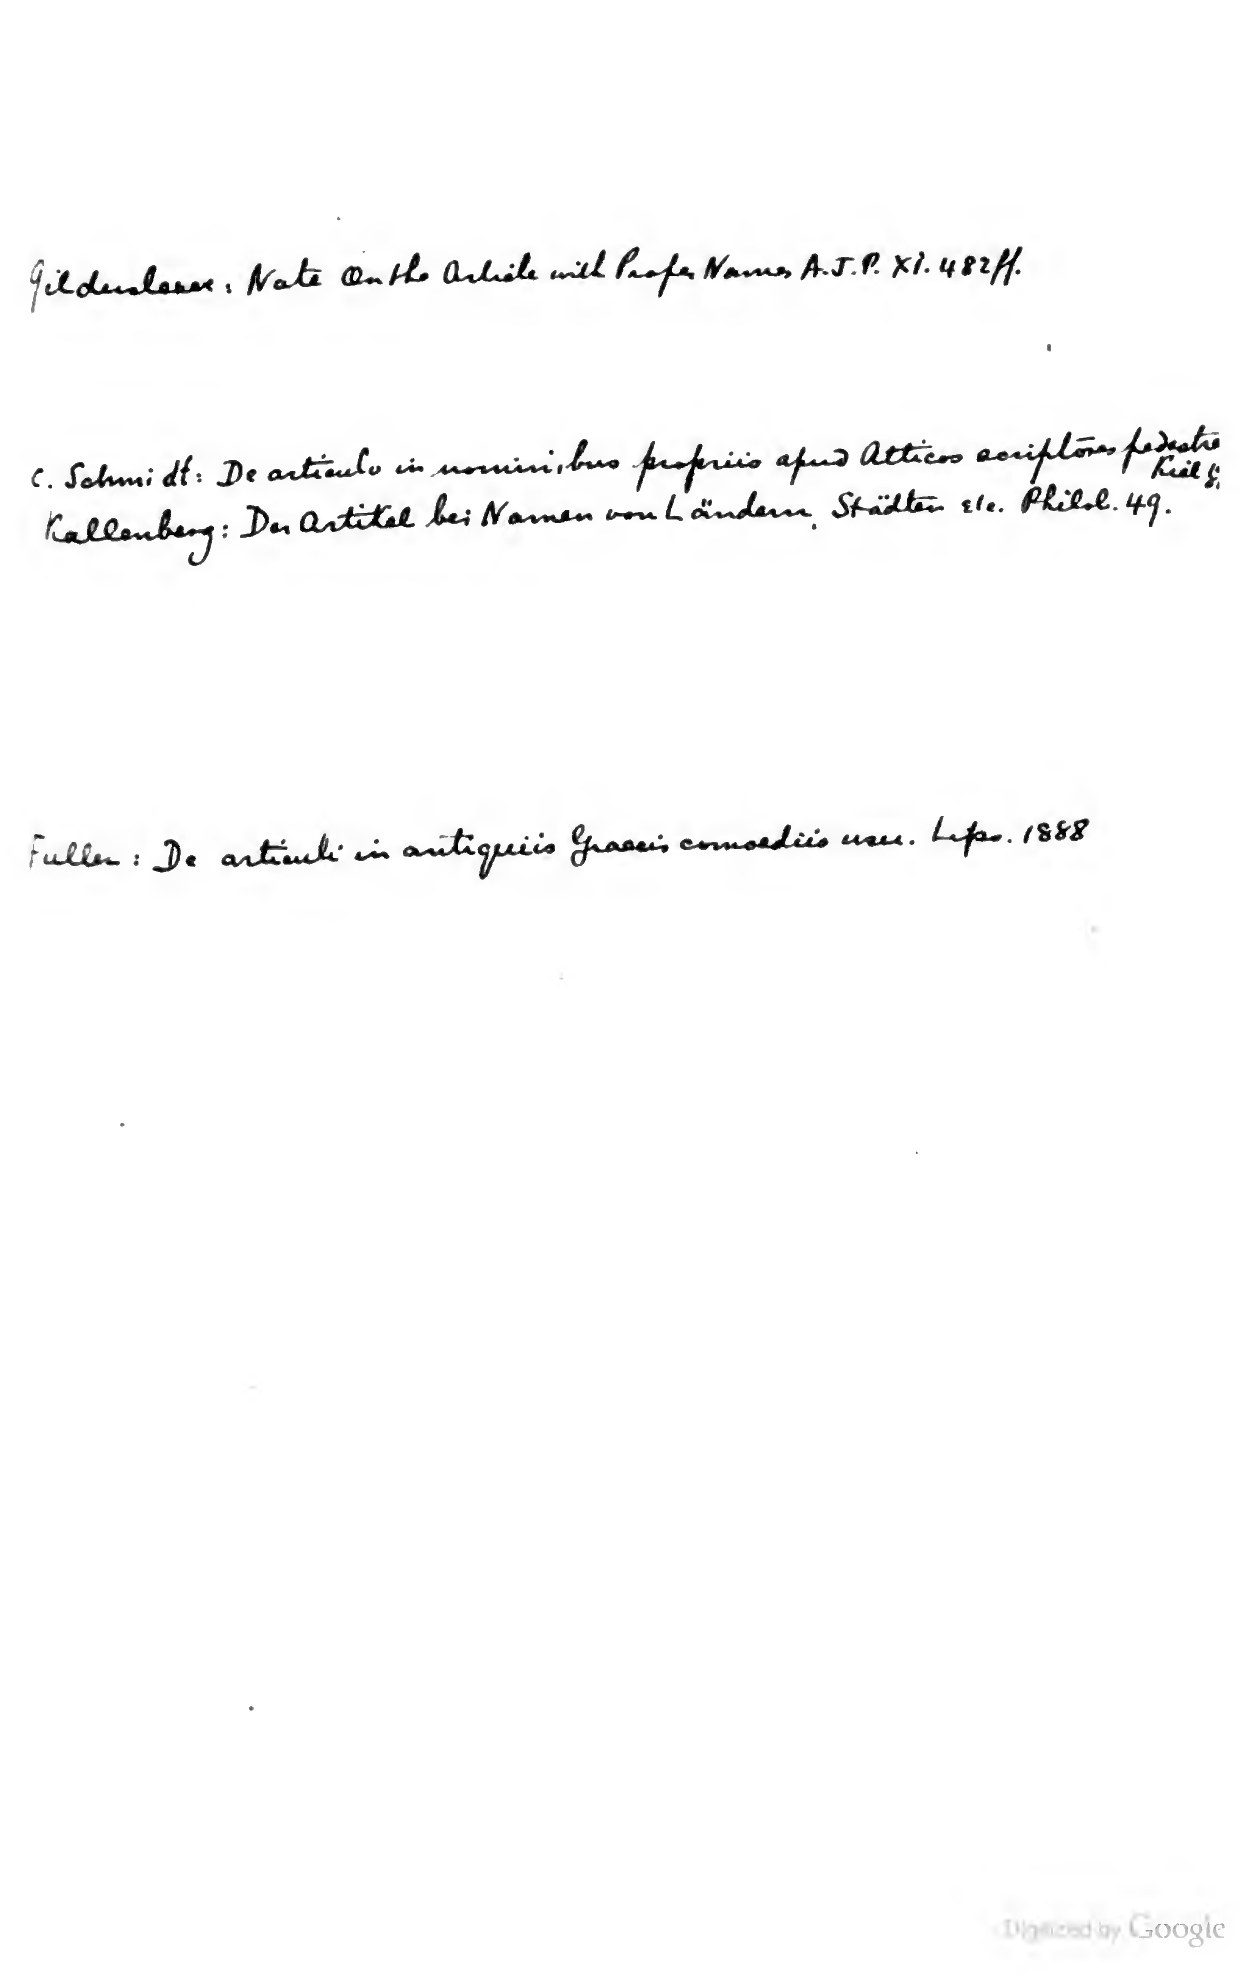 Gildersleeve: Note On the Article with Proper Names A.J.P. XI. 482ff.
C. Schmidt: De articulo in nominibus propriis apud Atticos scriptores pedestre
Kiel
Kallenberg: Der Artikel bei Namen von Ländern, Städten etc. Philol. 49.
Fuller: De articuli in antiquiis Graecis comoediis usu. Lips. 1888
Digitized by Google